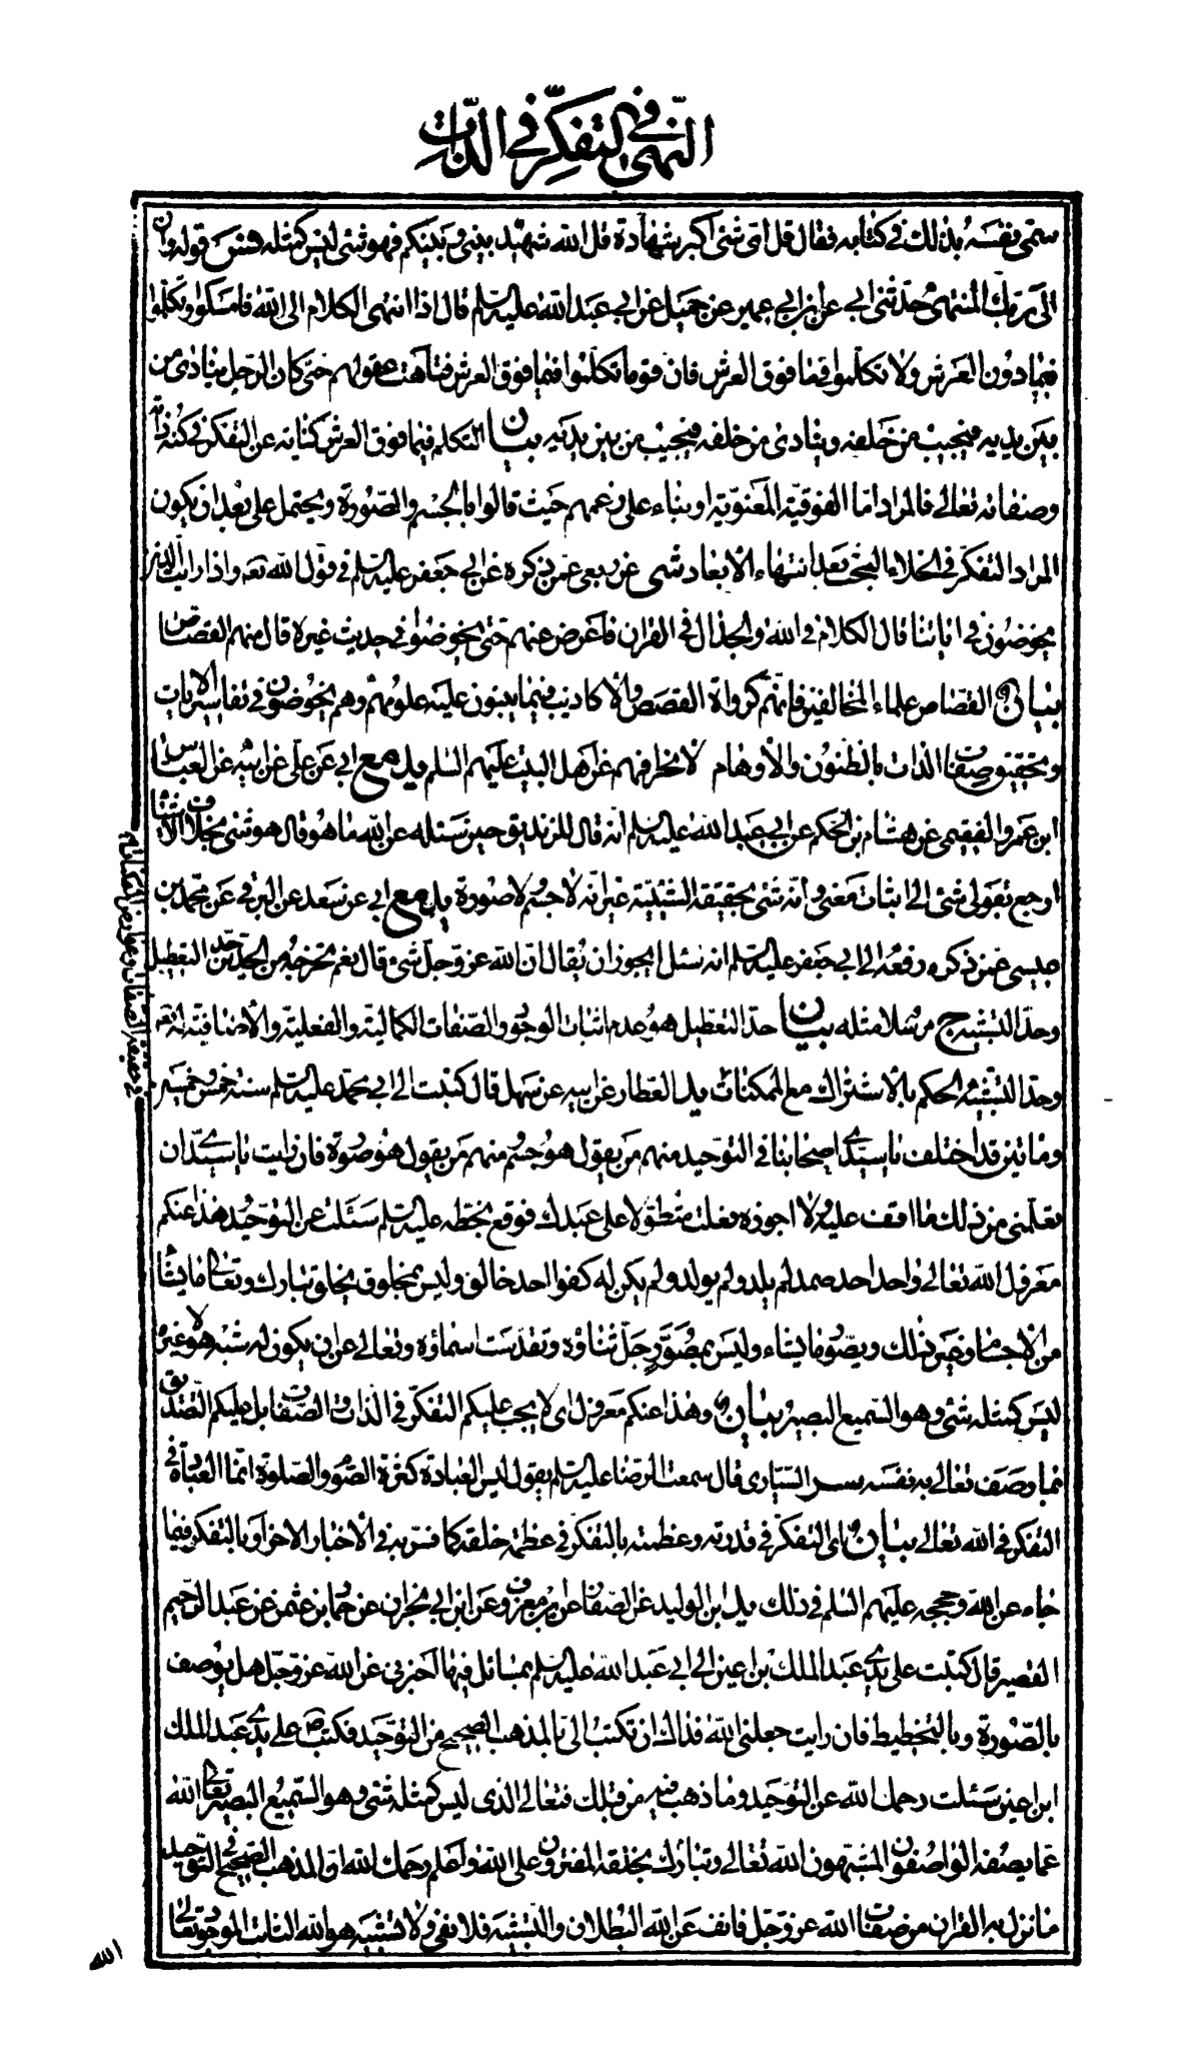 النهی فی التفکر فی الذات
سمی نفسه بذلک فی کتابه فقال قل ای شئ اکبر شهادة قل الله شهید بینی و بینکم فهو شئ لیس کمثله فس قوله وان
الی ربک المنتهی حدثنی ابی عن ابن ابی عمیر عن جمیل عن ابی عبد الله علیه السلم قال اذا انتهی الکلام الی الله فامسکوا و تکلموا
فیما دون العرش ولا تکلموا فیما فوق العرش فان قوما تکلموا فیما فوق العرش فتاهت عقولهم حتی کان الرجل ینادی من
بین یدیه فیجیب من خلفه و ینادی من خلفه فیجیب من بین یدیه بیان التکلم فیما فوق العرش کنایه عن التفکر فی کنه ذاته
و صفاته تعالی فالمراد اما الفوقیة المعنویة او بناء علی زعمهم حیث قالوا بالجسم والصورة و یحتمل علی بعد ان یکون
المراد التفکر فی الخلاء البحت بعد انتهاء الابعاد شی عن ربعی عمن ذکره عن ابی جعفر علیه السلم فی قول الله تعه و اذا رایت الذین
یخوضون فی ایاتنا قال الکلام فی الله والجدال فی القران فاعرض عنهم حتی یخوضوا فی حدیث غیره قال منهم القصاص
بیان القصاص علماء المخالفین فانهم کرواة القصص والاکاذیب فیما یبنون علیه علومهم وهم یخوضون فی تفاسیر الایات
و تحقیق صفات الذات بالظنون والاوهام لانحرافهم عن اهل البیت علیهم السلم ید مع ابی عن علی عن ابیه عن العباس
ابن عمرو الفقیمی عن هشام بن الحکم عن ابی عبد الله علیه السلم انه قال للزندیق حین سئله عن الله ما هو قال هو شئ بخلاف الاشیاء
ارجع بقولی شئ الی اثبات معنی و انه شئ بحقیقة الشیئیة غیر انه لا جسم ولا صورة ید مع ابی عن سعد عن البرقی عن محمد بن
عیسی عمن ذکره رفعه الی ابی جعفر علیه السلم انه سئل ایجوز ان یقال ان الله عز وجل شئ قال نعم تخرجه من الحدین حد التعطیل
وحد التشبیه ج مرسلا مثله بیان حد التعطیل هو عدم اثبات الوجود والصفات الکمالیة والفعلیة والاضافیة له تعه
وحد التشبیه الحکم بالاشتراک مع الممکنات ید العطار عن ابیه عن سهل قال کتبت الی ابی محمد علیه السلم سنة خمس و خمسین
و مائتین قد اختلف یا سیدی اصحابنا فی التوحید منهم من یقول هو جسم و منهم من یقول هو صورة فان رایت یا سیدی ان
تعلمنی من ذلک ما اقف علیه ولا اجوزه فعلت متطولا علی عبدک فوقع بخطه علیه السلم سئلت عن التوحید هذا عنکم
معزول الله تعالی واحد احد صمد لم یلد و لم یولد و لم یکن له کفوا احد خالق و لیس بمخلوق یخلق تبارک و تعالی ما یشاء
من الاجسام و غیر ذلک و یصور ما یشاء و لیس بمصور جل ثناؤه و تقدست اسماؤه و تعالی عن ان یکون له شبه هو لا غیره
لیس کمثله شئ و هو السمیع البصیر بیان و هذا عنکم معزول ای لا یجب علیکم التفکر فی الذات والصفات بل علیکم التصدیق
بما وصف تعالی به نفسه سر السیاری قال سمعت الرضا علیه السلم یقول لیس العبادة کثرة الصوم والصلوة انما العبادة فی
التفکر فی الله تعالی بیان ای التفکر فی قدرته و عظمته بالتفکر فی عظمة خلقه کما فسر به فی الاخبار الاخر او بالتفکر فیما
جاء عن الله و حججه علیهم السلم فی ذلک ید ابن الولید عن الصفار عن ابن معروف عن ابن ابی نجران عن حماد بن عثمن عن عبد الرحیم
القصیر قال کتبت علی یدی عبد الملک بن اعین الی ابی عبد الله علیه السلم بمسائل فیها اخبرنی عن الله عز وجل هل یوصف
بالصورة و بالتخطیط فان رایت جعلنی الله فداک ان تکتب الی بالمذهب الصحیح من التوحید فکتب ص علی یدی عبد الملک
ابن اعین سئلت رحمک الله عن التوحید و ما ذهب فیه من قبلک فتعالی الذی لیس کمثله شئ و هو السمیع البصیر تعالی الله
عما یصفه الواصفون المشبهون الله تعالی و تبارک بخلقه المفترون علی الله واعلم رحمک الله ان المذهب الصحیح فی التوحید
ما نزل به القران من صفات الله عز وجل فانف عن الله البطلان والتشبیه فلا نفی ولا تشبیه هو الله الثابت الموجود تعالی
الله